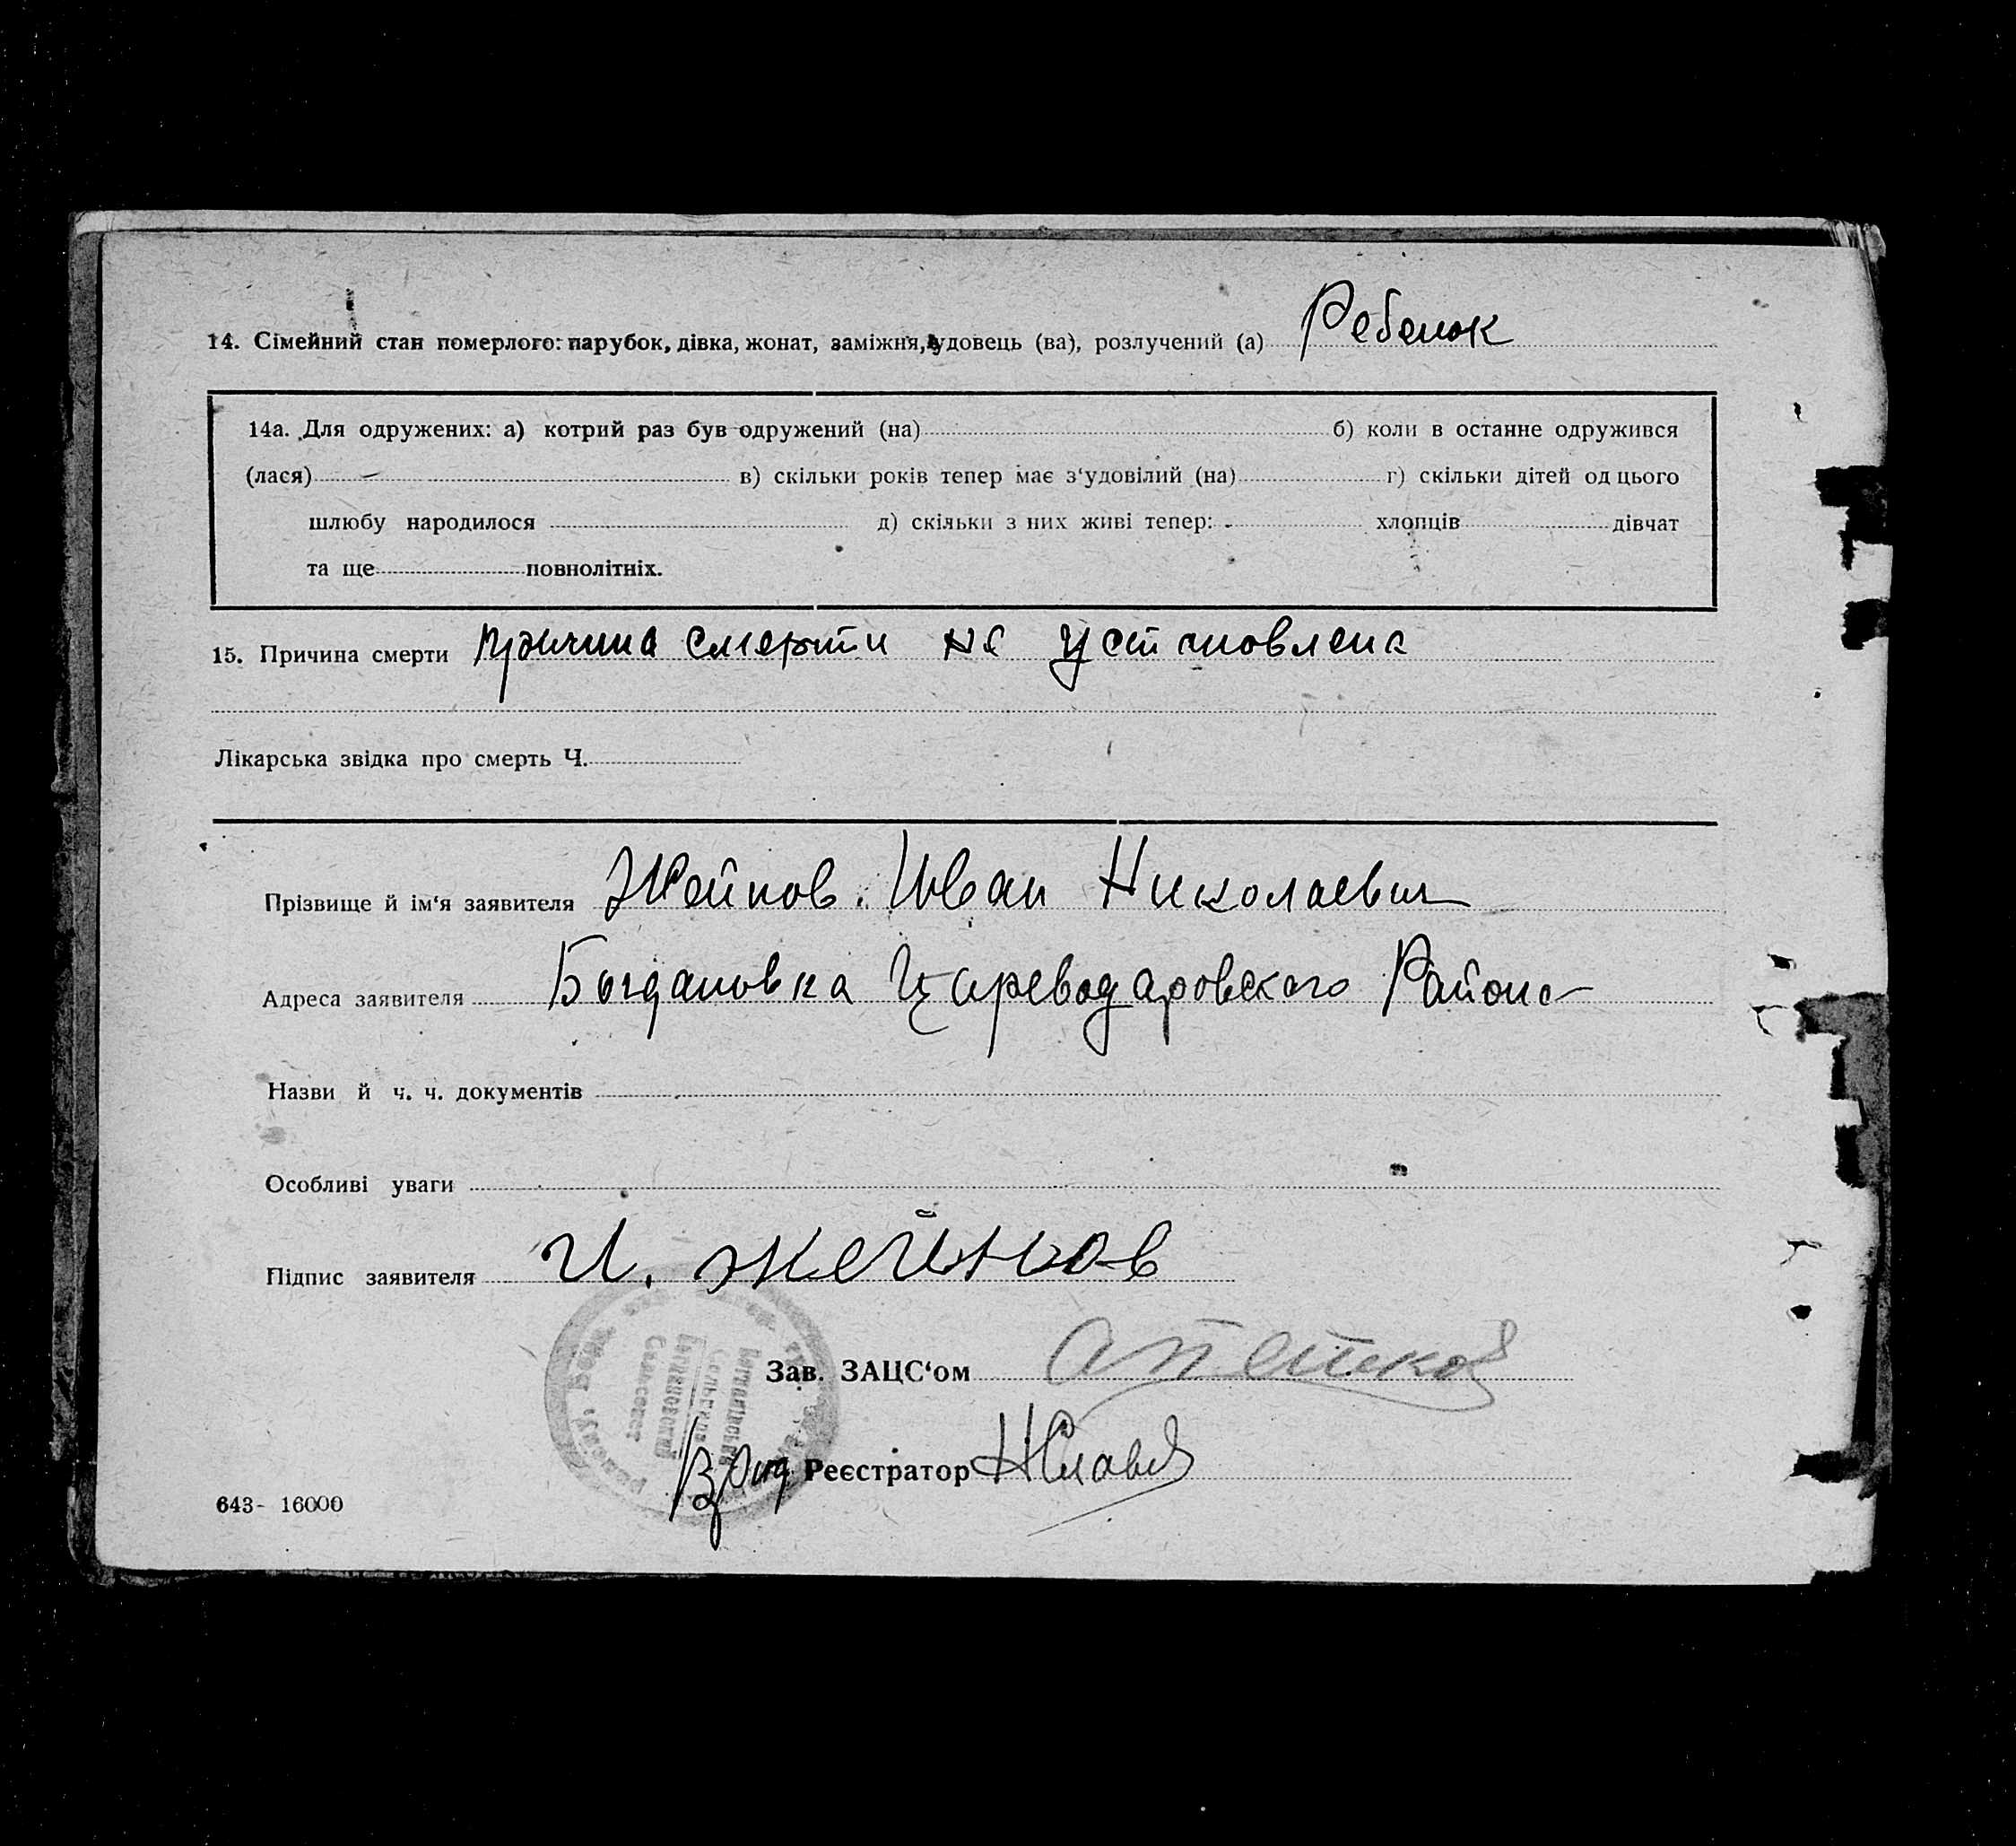 14. Сімейний стан померлого: парубок, дівка, жонат, заміжня, удовець (ва), розлучений (а) Ребенок
14а. Для одружених: а) котрий раз був одружений (на) б) коли в останне одружився
(лася) в) скільки років тепер має з‘удовілий (на) г) скільки дітей од цього
шлюбу народилося д) скільки з них живі тепер: хлопців дівчат
та ще повнолітніх.
15. Причина смерти причина смерти не установлена
Лікарська звідка про смерть Ч.
Прізвище й ім‘я заявителя Жейнов. Иван Николаевич
Адреса заявителя Богдановка Цареводаровского Района
Назви й ч. ч. документів
Особливі уваги
Підпис заявителя И. Жейнов
Зав. ЗАЦС‘ом
Реєстратор
Богданівська
Сельрада
Богдановский
Сельсовет
643- 16000